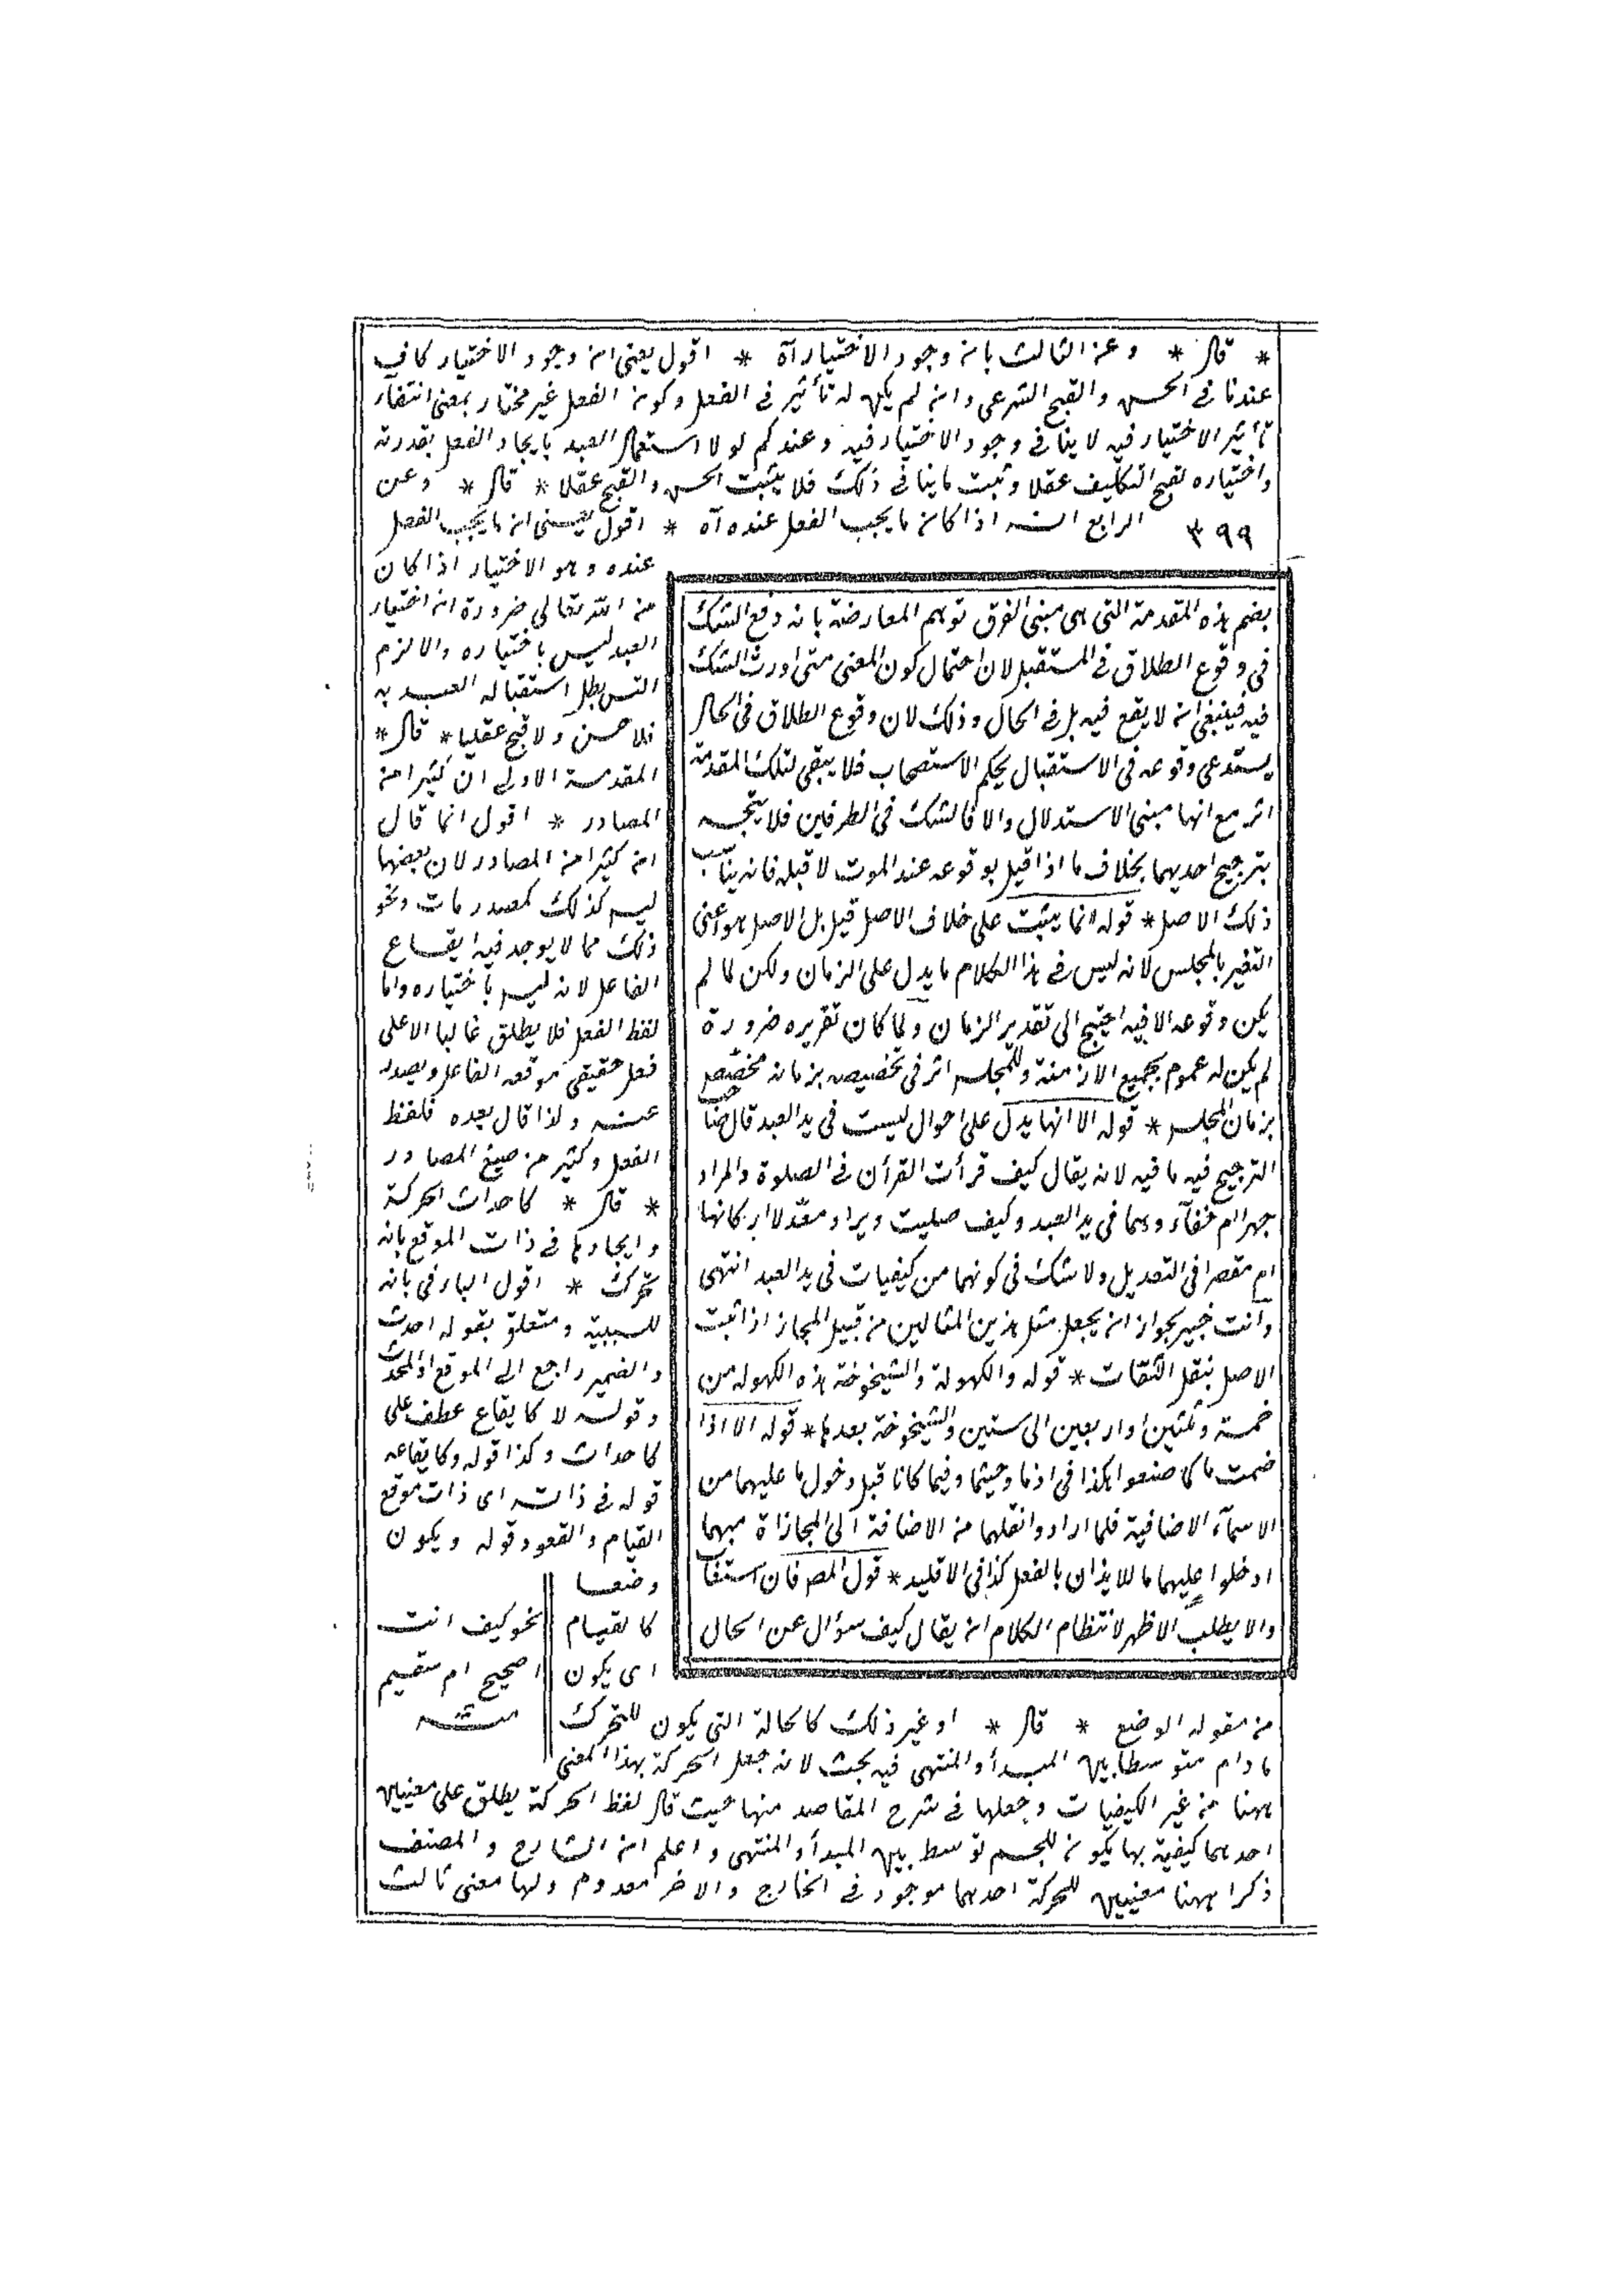 * قال * وعن الثالث بان وجود الاختيار آه * اقول يعنى ان وجود الاختيار كاف
عندنا فى الحسن والقبح الشرعى وان لم يكن له تأثير فى الفعل وكون الفعل غير مختار بمعنى انتفاء
تأثير الاختيار فيه لا ينافى وجود الاختيار فيه وعندكم لولا استعمال العبد بايجاد الفعل بقدرته
واختياره لقبح التكليف عقلا وثبت ما ينافى ذلك فلا يثبت الحسن والقبح عقلا * قال * وعن
٣٩٩ الرابع انه اذا كان ما يجب الفعل عنده آه * اقول يعنى ان ما يجب الفعل
عنده وهو الاختيار اذا كان
من الله تعالى ضرورة ان اختيار
العبد ليس باختياره والا لزم
التس بطل استقباله العبد به
فلا حسن ولا قبح عقليا * قال *
المقدمة الاولى ان كثيرا من
المصادر * اقول انما قال
ان كثيرا من المصادر لان بعضها
ليس كذلك كمصدر مات ونحو
ذلك مما لا يوجد فيه ايقاع
الفاعل لانه ليس باختياره واما
لفظ الفعل فلا يطلق غالبا الا على
فعل حقيقى موقعه الفاعل ويصدر
عنه ولذا قال بعده فلفظ
الفعل وكثير من صيغ المصادر
* قال * كاحداث الحركة
وايجادها فى ذات الموقع بانه
تحرك * اقول الباء فى بانه
للسببية ومتعلق بقوله احدث
والضمير راجع الى الموقع اذ المحدث
وقوله لا كايقاع عطف على
كاحداث وكذا قوله وكايقاعه
قوله فى ذاته اى ذات موقع
القيام والقعود وقوله ويكون
وضعا
كالقيام
اى يكون
من مقولة الوضع * قال * او غير ذلك كالحالة التى يكون للتحرك
ما دام متوسطا بين المبدأ والمنتهى فيه بحث لانه جعل الحركة بهذا المعنى
ههنا من غير الكيفيات وجعلها فى شرح المقاصد منها حيث قال لفظ الحركة يطلق على معنيين
احدهما كيفية بها يكون للجسم توسط بين المبدأ والمنتهى واعلم ان الشارح والمصنف
ذكرا ههنا معنيين للحركة احدهما موجود فى الخارج والاخر معدوم ولها معنى ثالث
بضم هذه المقدمة التى هى مبنى الفرق توهم المعارضة بانه وقع الشك
فى وقوع الطلاق فى المستقبل لان احتمال كون المعنى متى اورث الشك
فيه فينبغى ان لا يقع فيه بل فى الحال وذلك لان وقوع الطلاق فى الحال
يستدعى وقوعه فى الاستقبال بحكم الاستصحاب فلا يبقى لتلك المقدمة
اثر مع انها مبنى الاستدلال والا فالشك فى الطرفين فلا يتجه
بترجيح احديهما بخلاف ما اذا قيل بوقوعه عند الموت لا قبله فانه يناسب
ذلك الاصل * قوله انما يثبت على خلاف الاصل قيل بل الاصل هو اعنى
التغير بالمجلس لانه ليس فى هذا الكلام ما يدل على الزمان ولكن لما لم
يكن وقوعه الا فيه احتيج الى تقدير الزمان ولما كان تقريره ضرورة
لم يكن له عموم بجميع الازمنة وللمجلس اثر فى تخصيصه بزمانه فخصص
بزمان المجلس * قوله الا انها يدل على احوال ليست فى يد العبد قال صاحب
الترجيح فيه ما فيه لانه يقال كيف قرأت القرآن فى الصلوة والمراد
جهرا ام خفآء وهما فى يد العبد وكيف صليت ويراد معدلا اركانها
ام مقصرا فى التعديل ولا شك فى كونهما من كيفيات فى يد العبد انتهى
وانت خبير بجواز ان يجعل مثل هذين المثالين من قبيل المجاز اذا ثبت
الاصل بنقل الثقات * قوله والكهولة والشيخوخة هذه الكهولة من
خمسة وثلثين او اربعين الى ستين والشيخوخة بعدها * قوله الا اذا
ضمت ما كا صنعوا هكذا فى اذما وحيثما وفيما كانا قبل دخول ما عليهما من
الاسمآء الاضافية فلما ارادوا نقلهما من الاضافة الى المجازاة مبهما
ادخلوا عليهما ما للايذان بالفعل كذا فى الاقليد * قول المص فان استقاب
والا يطلب الاظهر لانتظام الكلام ان يقال كيف سؤال عن الحال
نحو كيف انت
اصحيح ام سقيم
منه